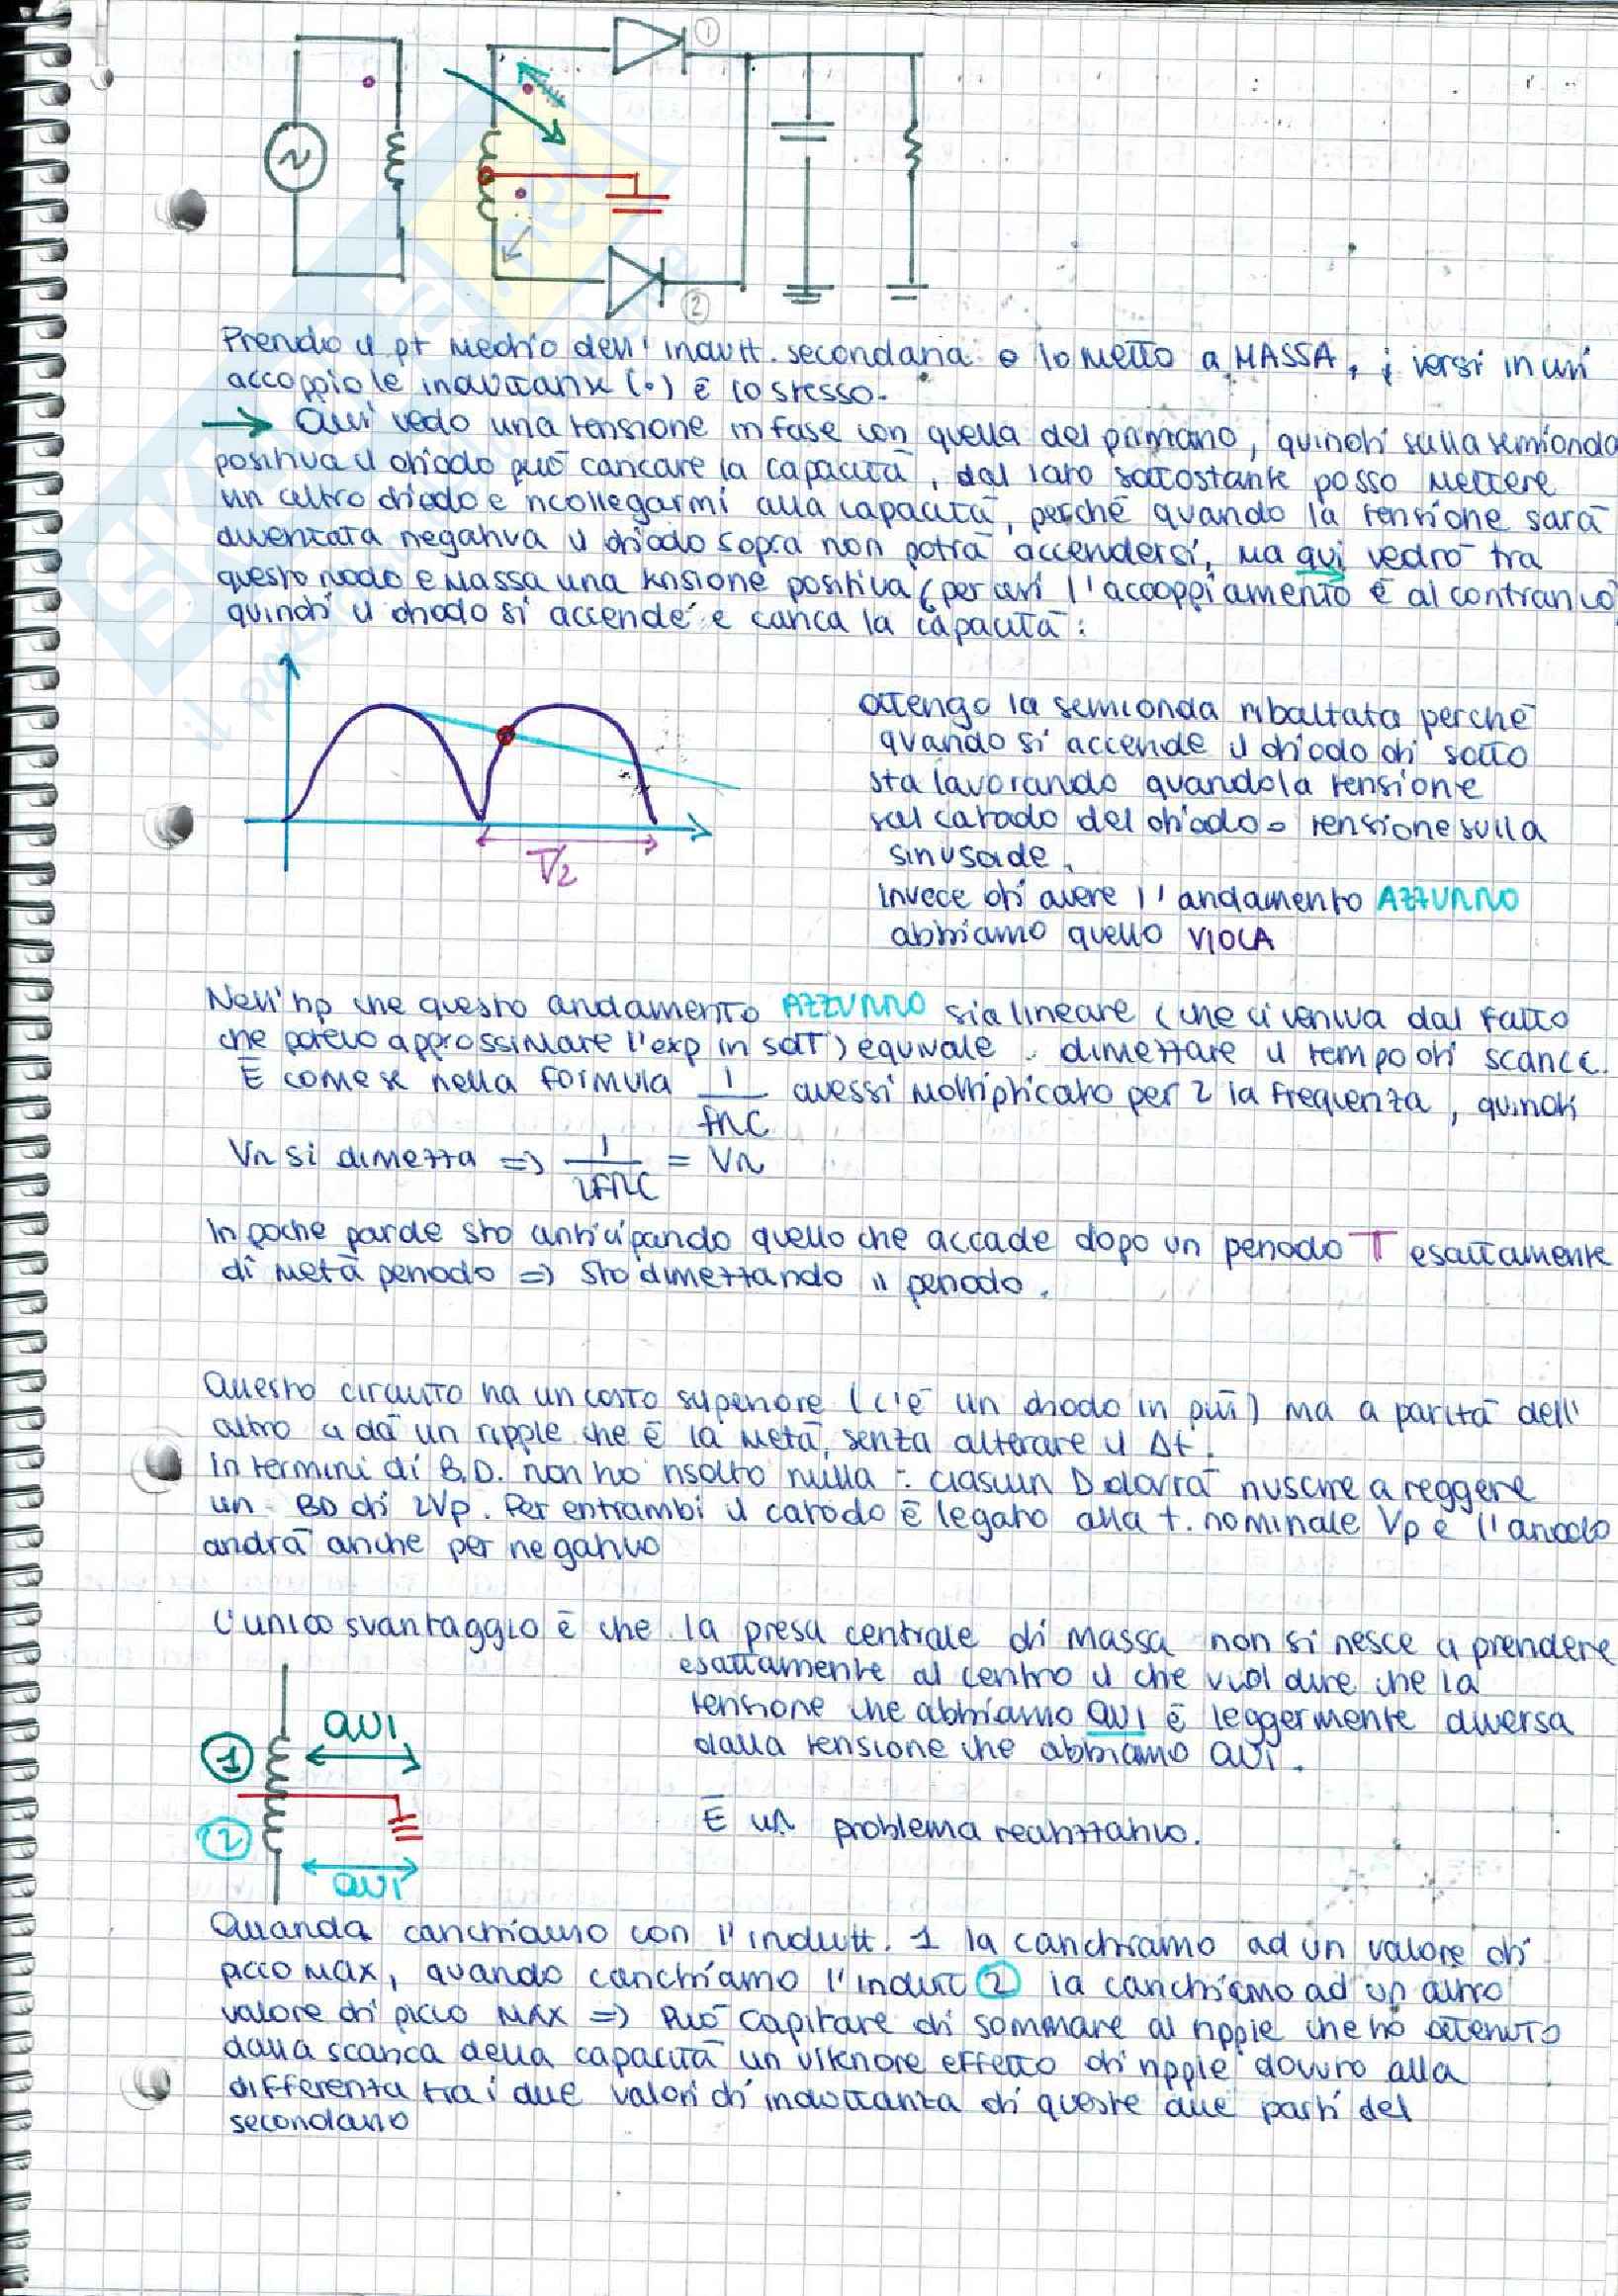 ①
②
Prendo il pt medio dell' indutt. secondaria e lo metto a MASSA, i versi in cui
accoppio le induttanze (•) è lo stesso.
→ Qui vedo una tensione in fase con quella del primario, quindi sulla semionda
positiva il diodo può caricare la capacità, dal lato sottostante posso mettere
un altro diodo e ricollegarmi alla capacità, perché quando la tensione sarà
diventata negativa il diodo sopra non potrà accendersi, ma qui vedrò tra
questo nodo e massa una tensione positiva (per cui l'accoppiamento è al contrario)
quindi il diodo si accende e carica la capacità:
ottengo la semionda ribaltata perché
quando si accende il diodo di sotto
sta lavorando quando la tensione
sul catodo del diodo = tensione sulla
sinusoide.
Invece di avere l'andamento AZZURRO
abbiamo quello VIOLA
T/2
Nell'hp che questo andamento AZZURRO sia lineare (che ci veniva dal fatto
che potevo approssimare l'exp in sdT) equivale dimezzare il tempo di scarica.
È come se nella formula 1/fRC avessi moltiplicato per 2 la frequenza, quindi
Vr si dimezza => 1/2fRC = Vr
In poche parole sto anticipando quello che accade dopo un periodo T esattamente
di metà periodo => Sto dimezzando il periodo.
Questo circuito ha un costo superiore (c'è un diodo in più) ma a parità dell'
altro ci dà un ripple che è la metà, senza alterare il Δt.
In termini di B.D. non ho risolto nulla: ciascun D dovrà riuscire a reggere
un BD di 2Vp. Per entrambi il catodo è legato alla t. nominale Vp e l'anodo
andrà anche per negativo
L'unico svantaggio è che la presa centrale di massa non si riesce a prendere
esattamente al centro il che vuol dire che la
tensione che abbiamo QUI è leggermente diversa
dalla tensione che abbiamo QUI.
QUI
①
②
QUI
È un problema realizzativo.
Quando carichiamo con l'indutt. 1 la carichiamo ad un valore di
picco MAX, quando carichiamo l'indutt ② la carichiamo ad un altro
valore di picco MAX => Può capitare di sommare al ripple che ho ottenuto
dalla scarica della capacità un ulteriore effetto di ripple dovuto alla
differenza tra i due valori di induttanza di queste due parti del
secondario